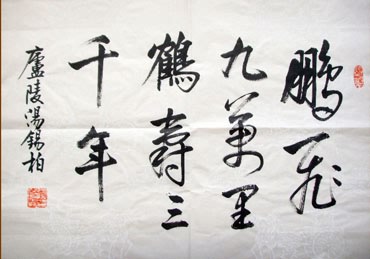 鵬飛
九萬里
鶴壽三
千年
廬陵湯錫柏